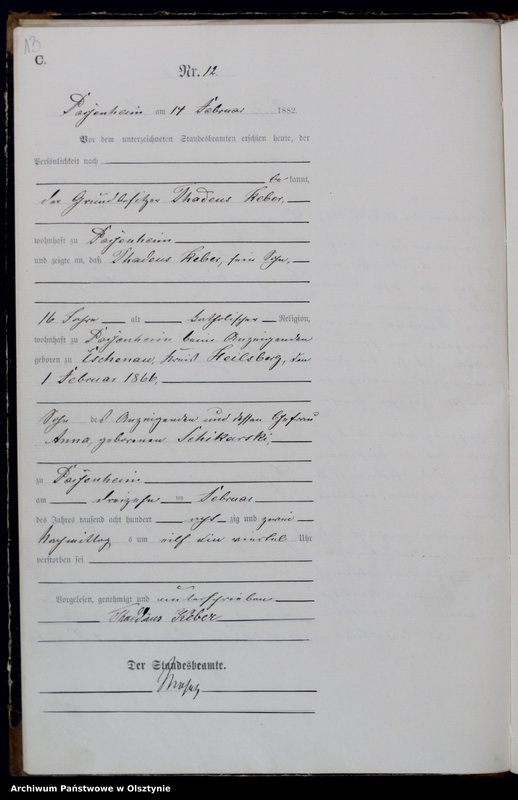 13
C.
Nr. 12
am 14 Februar 1882.
Vor dem unterzeichneten Standesbeamten erschien heute, der
Persönlichkeit nach
be kannt,
der Grundbesitzer Thadeus Keber,
wohnhaft zu
und zeigte an, daß Thadeus Keber, sein Sohn,
16 Jahre alt katholischer Religion,
wohnhaft zu beim Anzeigenden
geboren zu Eschenau, Kreis Heilsberg, den
1 Februar 1866,
Sohn des Anzeigenden und dessen Ehefrau
Anna, geborenen Schikarski,
zu
am dreizehn ten Februar
des Jahres tausend acht hundert acht zig und zwei
Nachmittag s um elf ein viertel Uhr
verstorben sei
Vorgelesen, genehmigt und unterschrieben
Keber
Der Standesbeamte.
Archiwum Państwowe w Olsztynie